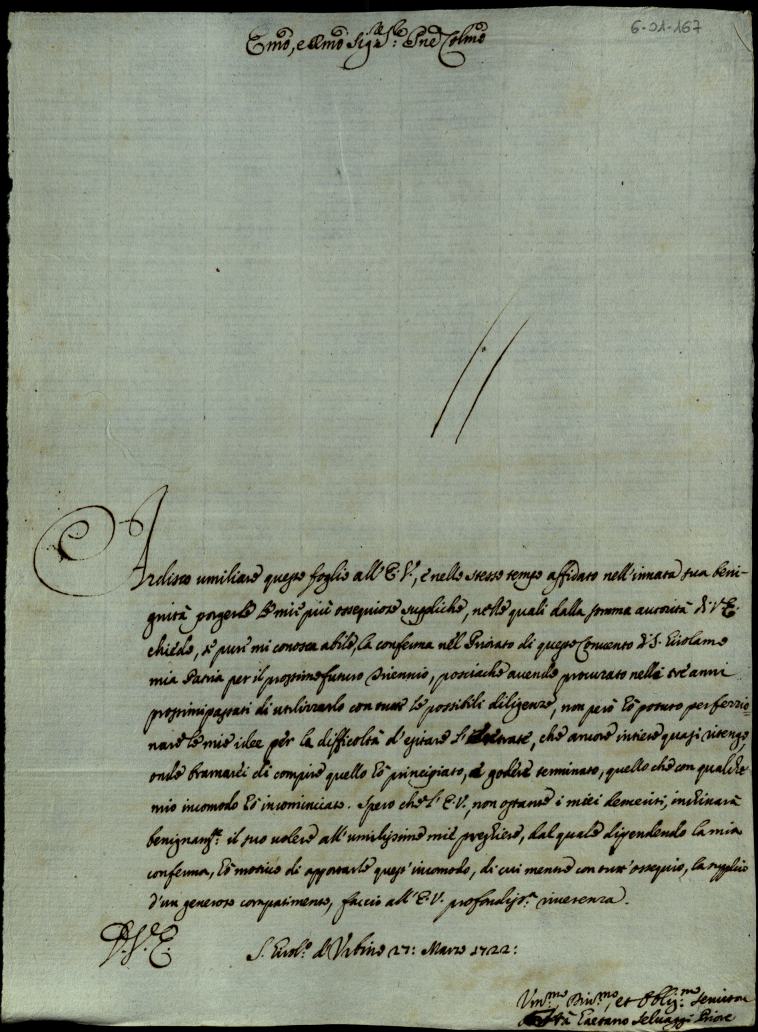 6-01-167
Emo, e Rmo Sigre Sr: Pne Colmo
Ardisco umiliare questo foglio all'E.V., e nello stesso tempo affidato nell'innata sua beni-
gnità porgerle le mie più ossequiose suppliche, nelle quali dalla somma autorità di V.E.
chiedo, se pure mi conosca abile, la conferma nel Priorato di questo Convento di S. Girolamo
mia Patria per il prossimo futuro Triennio, posciache avendo procurato nelli trè anni
prossimi passati di utilizzarlo con tutte le possibili diligenze, non però hò potuto perfezzio-
nare le mie idee per la difficoltà d'esitare l'entrate, che ancora intiere quasi ritengo,
onde bramarei di compire quello hò principiato, e godere terminato, quello che con qualche
mio incomodo hò incominciato. Spero che l'E.V., non ostante i miei demeriti, inclinarà
benignamte: il suo volere all'umilissime mie preghiere, dal quale dipendendo la mia
conferma, hò motivo di apportarle quest'incomodo, di cui mentre con tutt'ossequio, la supplico
d'un generoso compatimento, faccio all'E.V. profondissa: riverenza.
D.V.E.
S. Girolo: d'Urbino 27: Marzo 1722:
Umo, Divmo, et Obligmo Servitore
Gaetano Selvaggi Priore